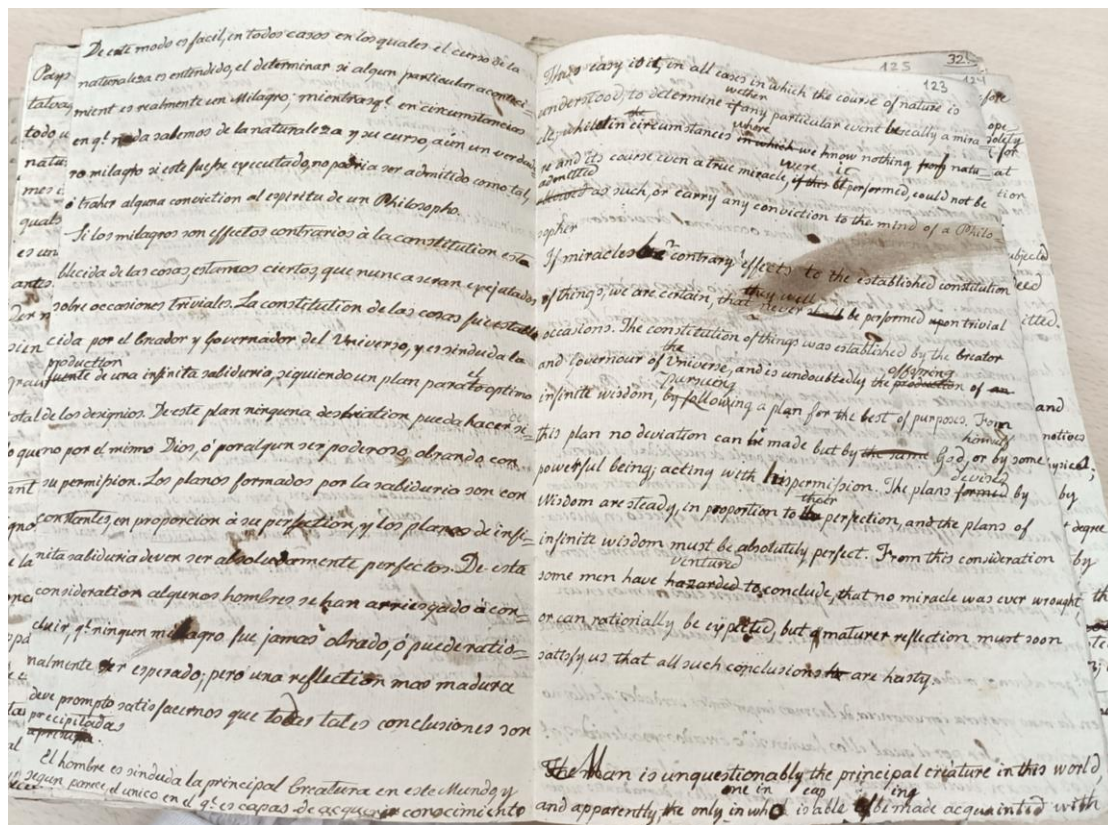 De este modo es facil, en todos casos en los quales el curso de la
naturaleza es entendido, el determinar si algun particular aconteci=
mient es realmente un Milagro; mientras q.e en circumstancias
en q.e nada sabemos de la naturaleza y su curso, aún un verdade
ro milagro si este fuese executado, no podria ser admitido como tal,
ó traher alguna conviction al espiritu de un Philosopho.
Si los milagros son effectos contrarios à la constitution esta
blecida de las cosas, estamos ciertos, que nunca seran exejatados
sobre occasiones triviales. La constitution de las cosas fue estable
cida por el Creador y Governador del Universo, y es sinduda la
production
fuente de una infinita sabiduria, siguiendo un plan para el optimo
total de los designios. De este plan ninguena desviation pueda hacer se=
queno por el mismo Dios, ó por algun ser poderoso, obrando con
su permission. Los planos formados por la sabiduria son con
constantes, en proporcion à su perfection, y los planos de infi=
nita sabiduria dever ser absoludamente perfectos. De esta
consideration algunos hombres se han arriesgado à con=
cluir, q.e ninguen milagro fue jamas obrado, ó puede ratio=
nalmente ser esperado; pero una reflection mas madura
deve prompto satisfacernos que todas tales conclusiones son
precipitadas
El hombre es sinduda la principal Creatura en este Mundo, y
segun parece el unico en el q.e es capas de acquerir conocimiento
125
32
123
124
Thus easy is it, in all cases in which the course of nature is
wether
understood, to determine if any particular event be really a mira
the where
cle; whilst in circumstances in which we know nothing of natu=
were it
re and its course even a true miracle, if this be performed, could not be
admitted
allowed as such, or carry any conviction to the mind of a Philo=
sopher
If miracles be contrary effects to the established constitution
they will
of things, we are certain, that never shall be performed upon trivial
occasions. The constitution of things was established by the Creator
the offspring
and Governour of Universe, and is undoubtedly the production of an
pursuing
infinite wisdom, by following a plan for the best of purposes. From
himself
this plan no deviation can be made but by the same God, or by some
devised
powerful being; acting with his permission. The plans formed by
their
Wisdom are steady, in proportion to the perfection, and the plans of
infinite wisdom must be absolutely perfect. From this consideration
ventured
some men have hazarded to conclude, that no miracle was ever wrought
or can rationally be expected, but a maturer reflection must soon
satisfy us that all such conclusions are hasty.
The Man is unquestionably the principal criature in this world,
one in cap ing
and apparently, the only in who is able of be made acquainted with